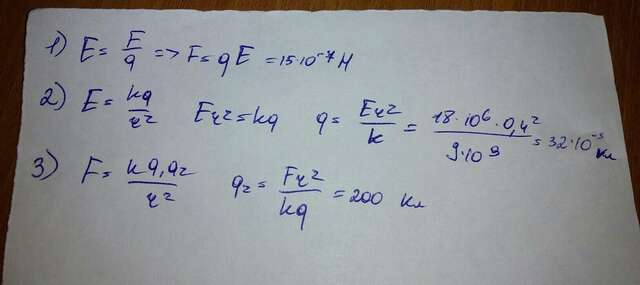 1) E = E/q => F = qE = 15·10⁻⁷ Н
2) E = kq/r² Er² = kq q = Er²/k = 18·10⁶·0,4²/9·10⁹ = 32·10⁻⁵ Кл
3) F = kq₁q₂/r² q₂ = Fr²/kq = 200 Кл